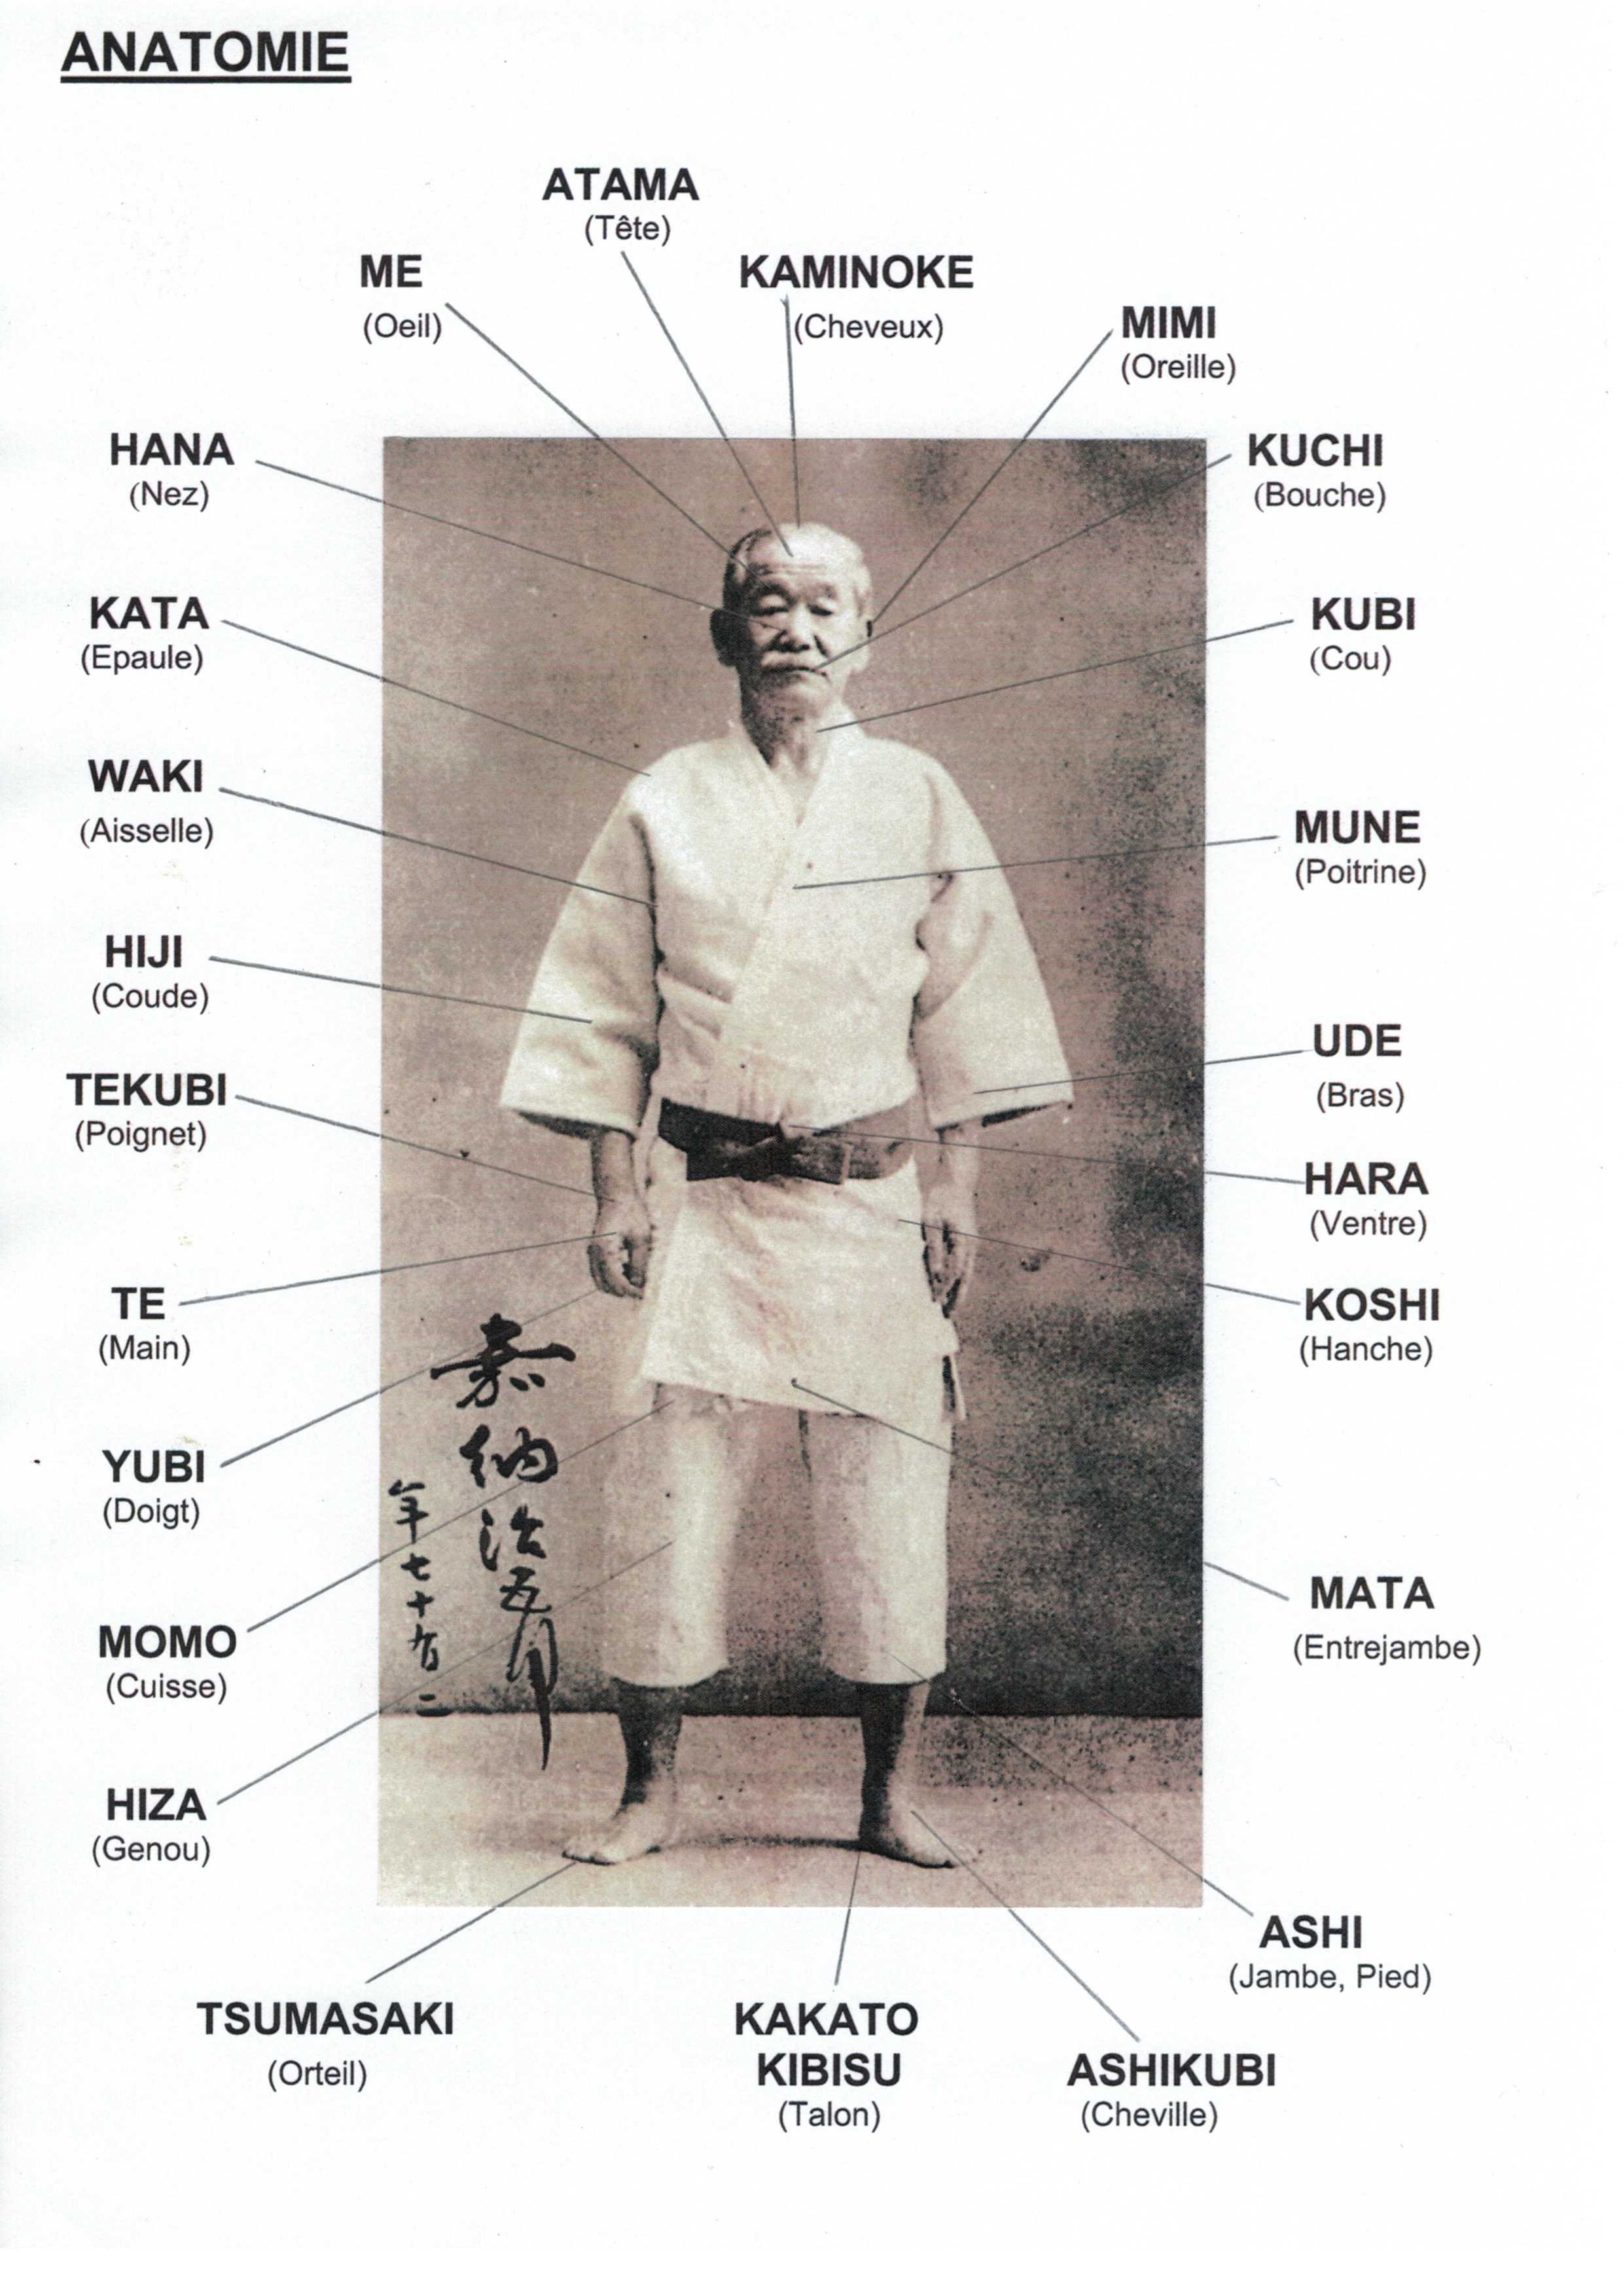 ANATOMIE
ATAMA
(Tête)
ME
(Oeil)
KAMINOKE
(Cheveux)
MIMI
(Oreille)
HANA
(Nez)
KUCHI
(Bouche)
KATA
(Epaule)
KUBI
(Cou)
WAKI
(Aisselle)
MUNE
(Poitrine)
HIJI
(Coude)
UDE
(Bras)
TEKUBI
(Poignet)
HARA
(Ventre)
TE
(Main)
KOSHI
(Hanche)
YUBI
(Doigt)
MATA
(Entrejambe)
MOMO
(Cuisse)
HIZA
(Genou)
ASHI
(Jambe, Pied)
TSUMASAKI
(Orteil)
KAKATO
KIBISU
(Talon)
ASHIKUBI
(Cheville)
嘉納治五郎
年七十有二